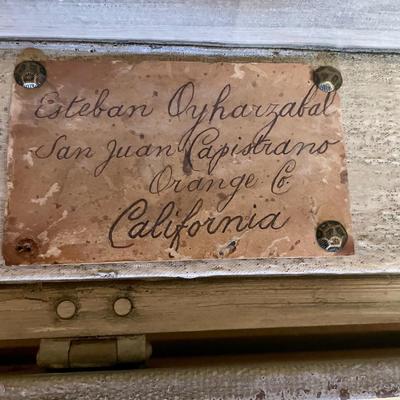 Esteban Oyharzabal
San Juan Capistrano
Orange Co.
California